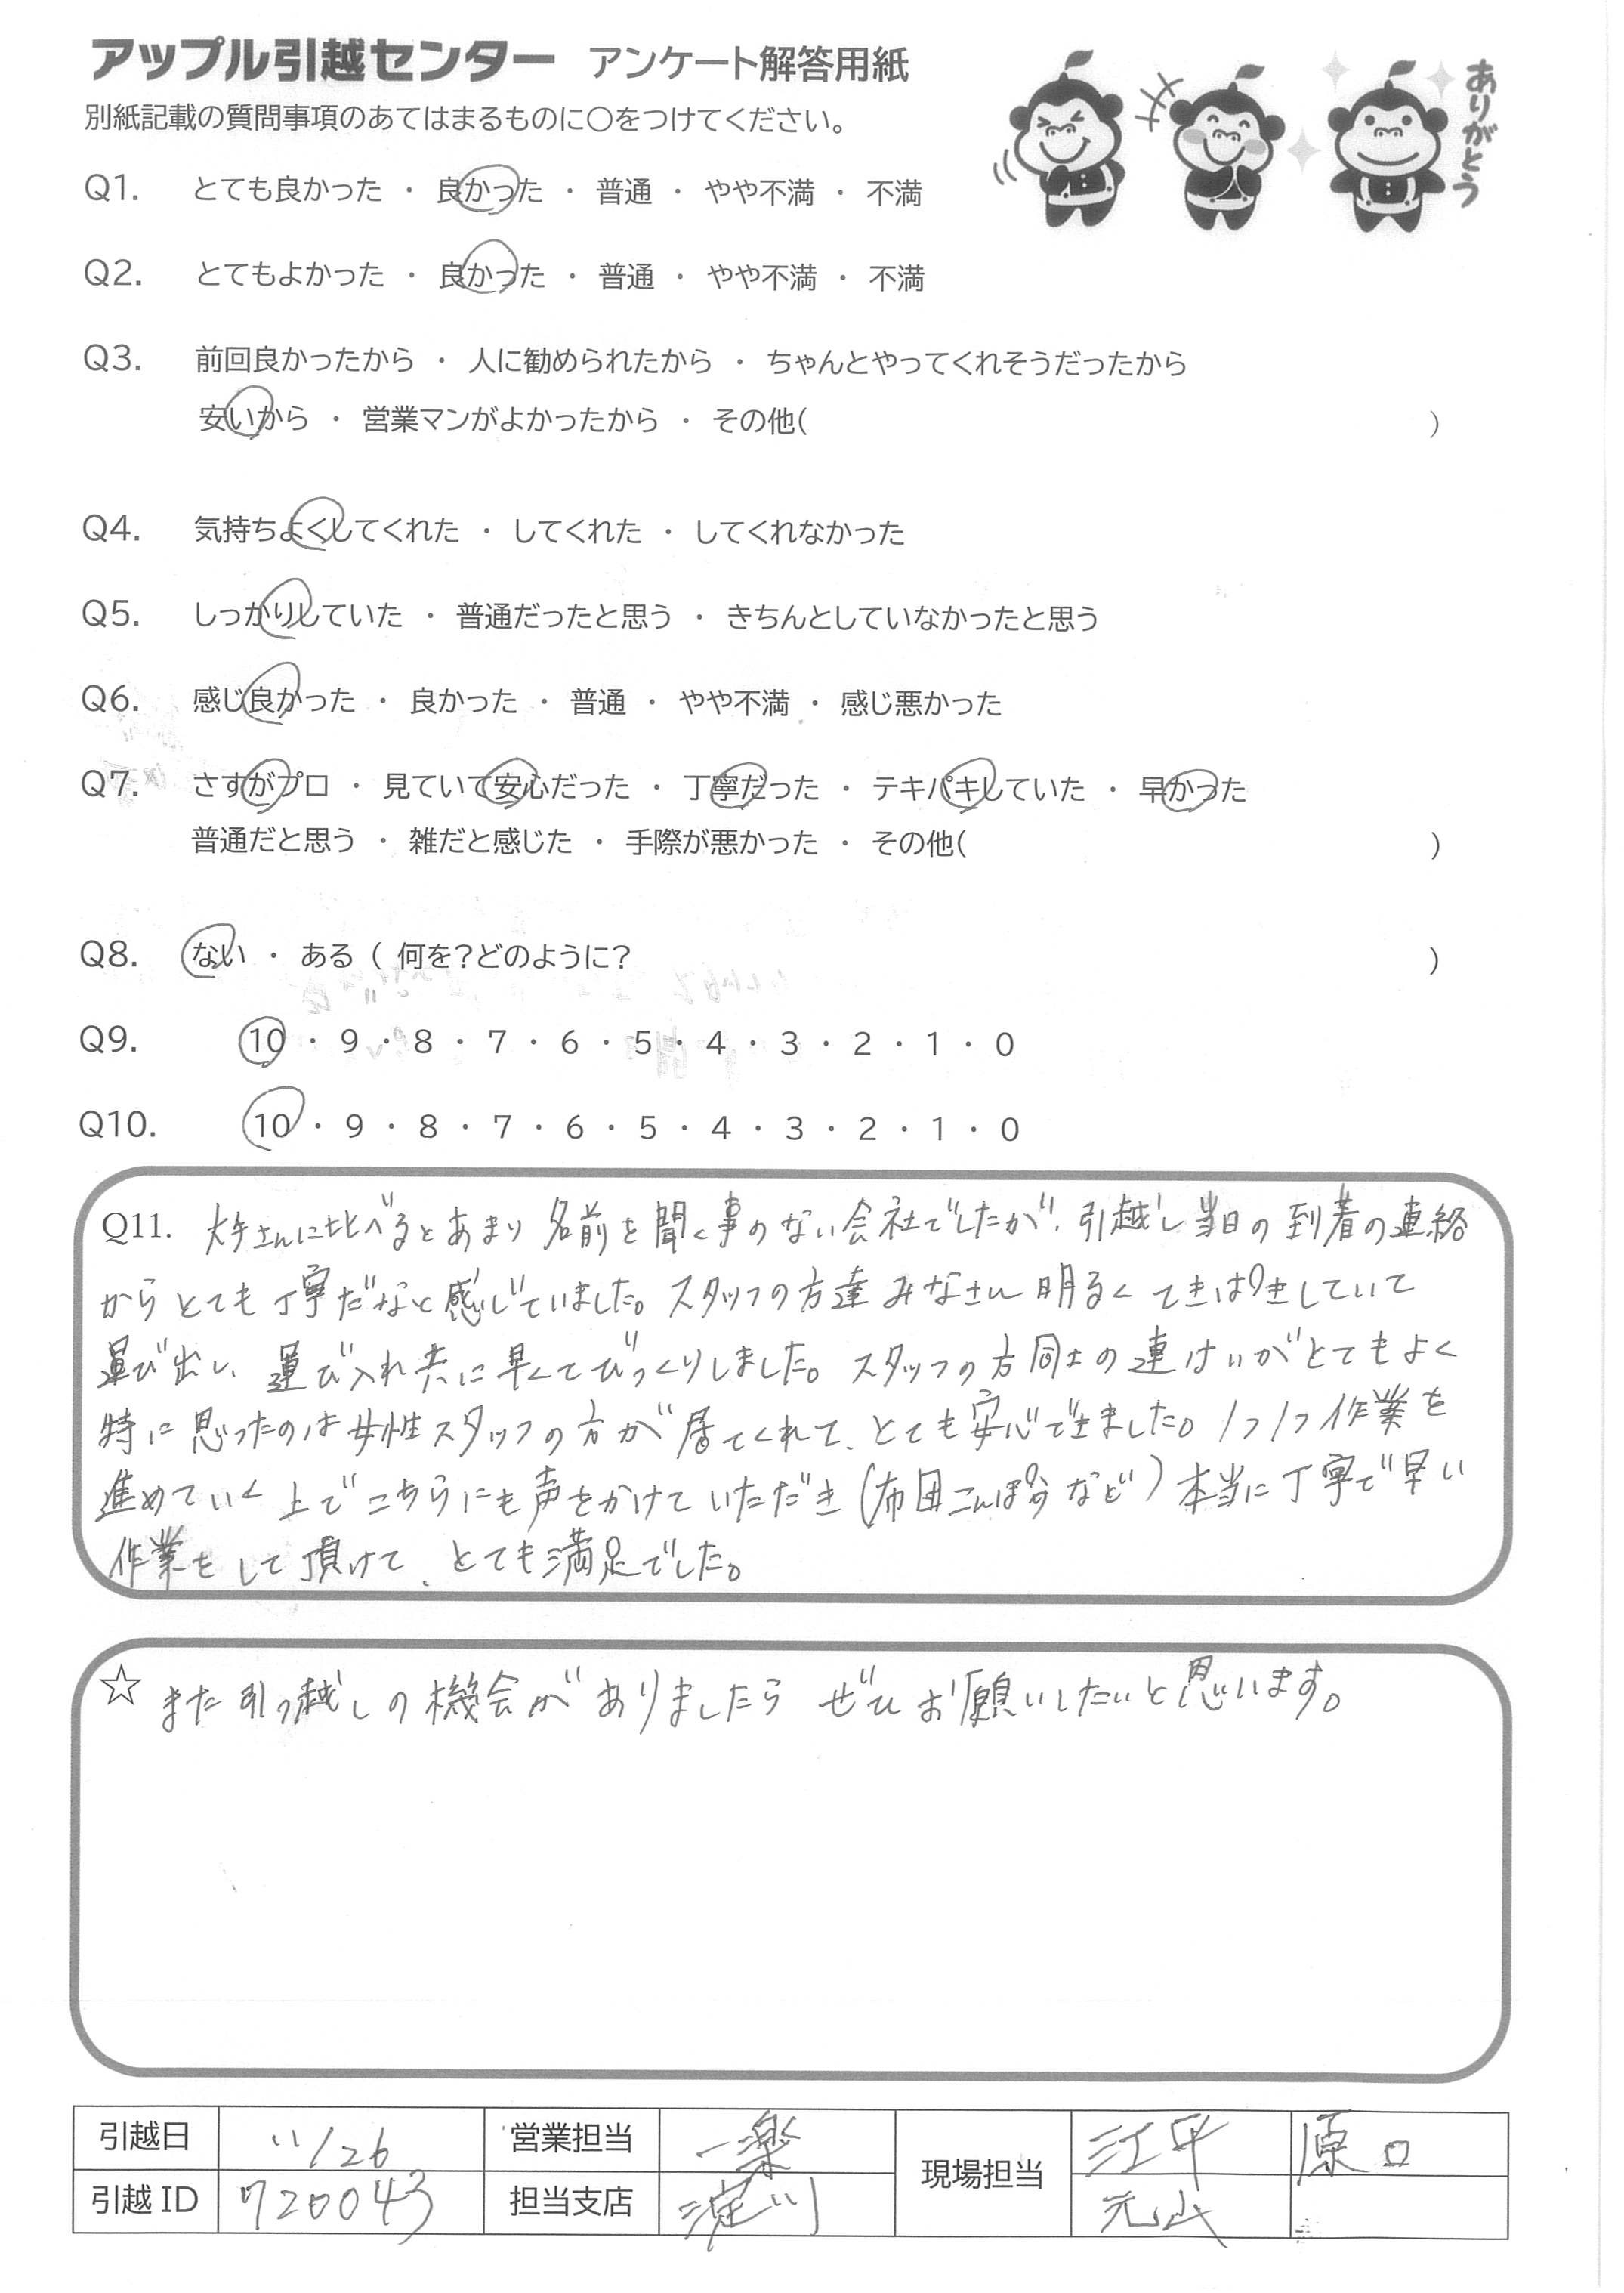 アップル引越センター アンケート解答用紙
別紙記載の質問事項のあてはまるものに〇をつけてください。
ありがとう
Q1. とても良かった ・ 良かった ・ 普通 ・ やや不満 ・ 不満
Q2. とてもよかった ・ 良かった ・ 普通 ・ やや不満 ・ 不満
Q3. 前回良かったから ・ 人に勧められたから ・ ちゃんとやってくれそうだったから
安いから ・ 営業マンがよかったから ・ その他( )
Q4. 気持ちよくしてくれた ・ してくれた ・ してくれなかった
Q5. しっかりしていた ・ 普通だったと思う ・ きちんとしていなかったと思う
Q6. 感じ良かった ・ 良かった ・ 普通 ・ やや不満 ・ 感じ悪かった
Q7. さすがプロ ・ 見ていて安心だった ・ 丁寧だった ・ テキパキしていた ・ 早かった
普通だと思う ・ 雑だと感じた ・ 手際が悪かった ・ その他( )
Q8. ない ・ ある ( 何を?どのように? )
Q9. 10 ・ 9 ・ 8 ・ 7 ・ 6 ・ 5 ・ 4 ・ 3 ・ 2 ・ 1 ・ 0
Q10. 10 ・ 9 ・ 8 ・ 7 ・ 6 ・ 5 ・ 4 ・ 3 ・ 2 ・ 1 ・ 0
Q11. 大手さんに比べるとあまり名前を聞く事のない会社でしたが、引越し当日の到着の連絡
からとても丁寧だなと感じていました。スタッフの方達みなさん明るくてきぱきしていて
運び出し、運び入れ共に早くてびっくりしました。スタッフの方同士の連けいがとてもよく
特に思ったのは女性スタッフの方が居てくれて、とても安心できました。1つ1つ作業を
進めていく上でこちらにも声をかけていただき(布団こんぽうなど)本当に丁寧で早い
作業をして頂けて、とても満足でした。
☆ また引っ越しの機会がありましたらぜひお願いしたいと思います。
引越日 11/26 営業担当 一楽 現場担当 江平 原口
引越ID 720043 担当支店 淀川 元山